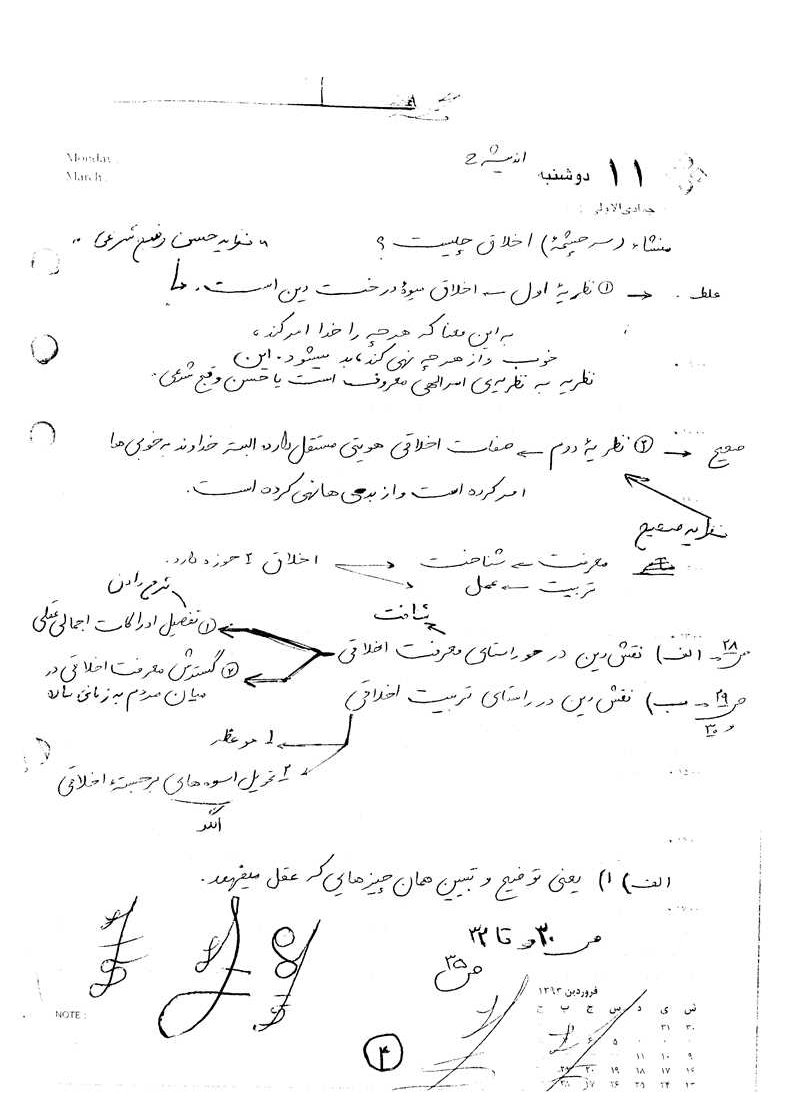 Monday
March
۱۱ دوشنبه
اندیشه ۲
جمادی الاولی
منشاء (سرچشمهٔ) اخلاق چیست ؟
" نظریه حسن و قبح شرعی "
غلط . ← ① نظریهٔ اول ← اخلاق میوهٔ درخت دین است.
به این معنا که هر چه را خدا امر کند،
خوب و از هر چه نهی کند، بد میشود. این
نظریه به نظریه‌ی امر الهی معروف است یا حسن و قبح شرعی.
صحیح ← ② نظریهٔ دوم ← صفات اخلاقی هویتی مستقل دارد البته خداوند به خوبی ها
امر کرده است و از بدی ها نهی کرده است.
نظریه صحیح
اخلاق ۲ حوزه دارد.
معرفت ← شناخت
تربیت ← عمل
شرح دادن
شناخت
ص ۲۸ الف) نقش دین در راستای معرفت اخلاقی
① تفصیل ادراکات اجمالی عقلی
② گسترش معرفت اخلاقی در
میان مردم به زبانی ساده
ص ۲۹ و ۳۰ ب) نقش دین در راستای تربیت اخلاقی
۱ موعظه
۲ تحویل اسوه های برجسته اخلاقی
الگو
الف) ۱) یعنی توضیح و تبیین همان چیزهایی که عقل میفهمد.
ص ۳۰ و تا ۳۲
ص ۳۵
فروردین ۱۳۹۳
ش ی د س چ پ ج
۳۰ ۳۱
۹ ۱۰ ۱۱
۱۶ ۱۷ ۱۸ ۱۹ ۲۰ ۲۱
۲۳ ۲۴ ۲۵ ۲۶ ۲۷ ۲۸
NOTE :
۴